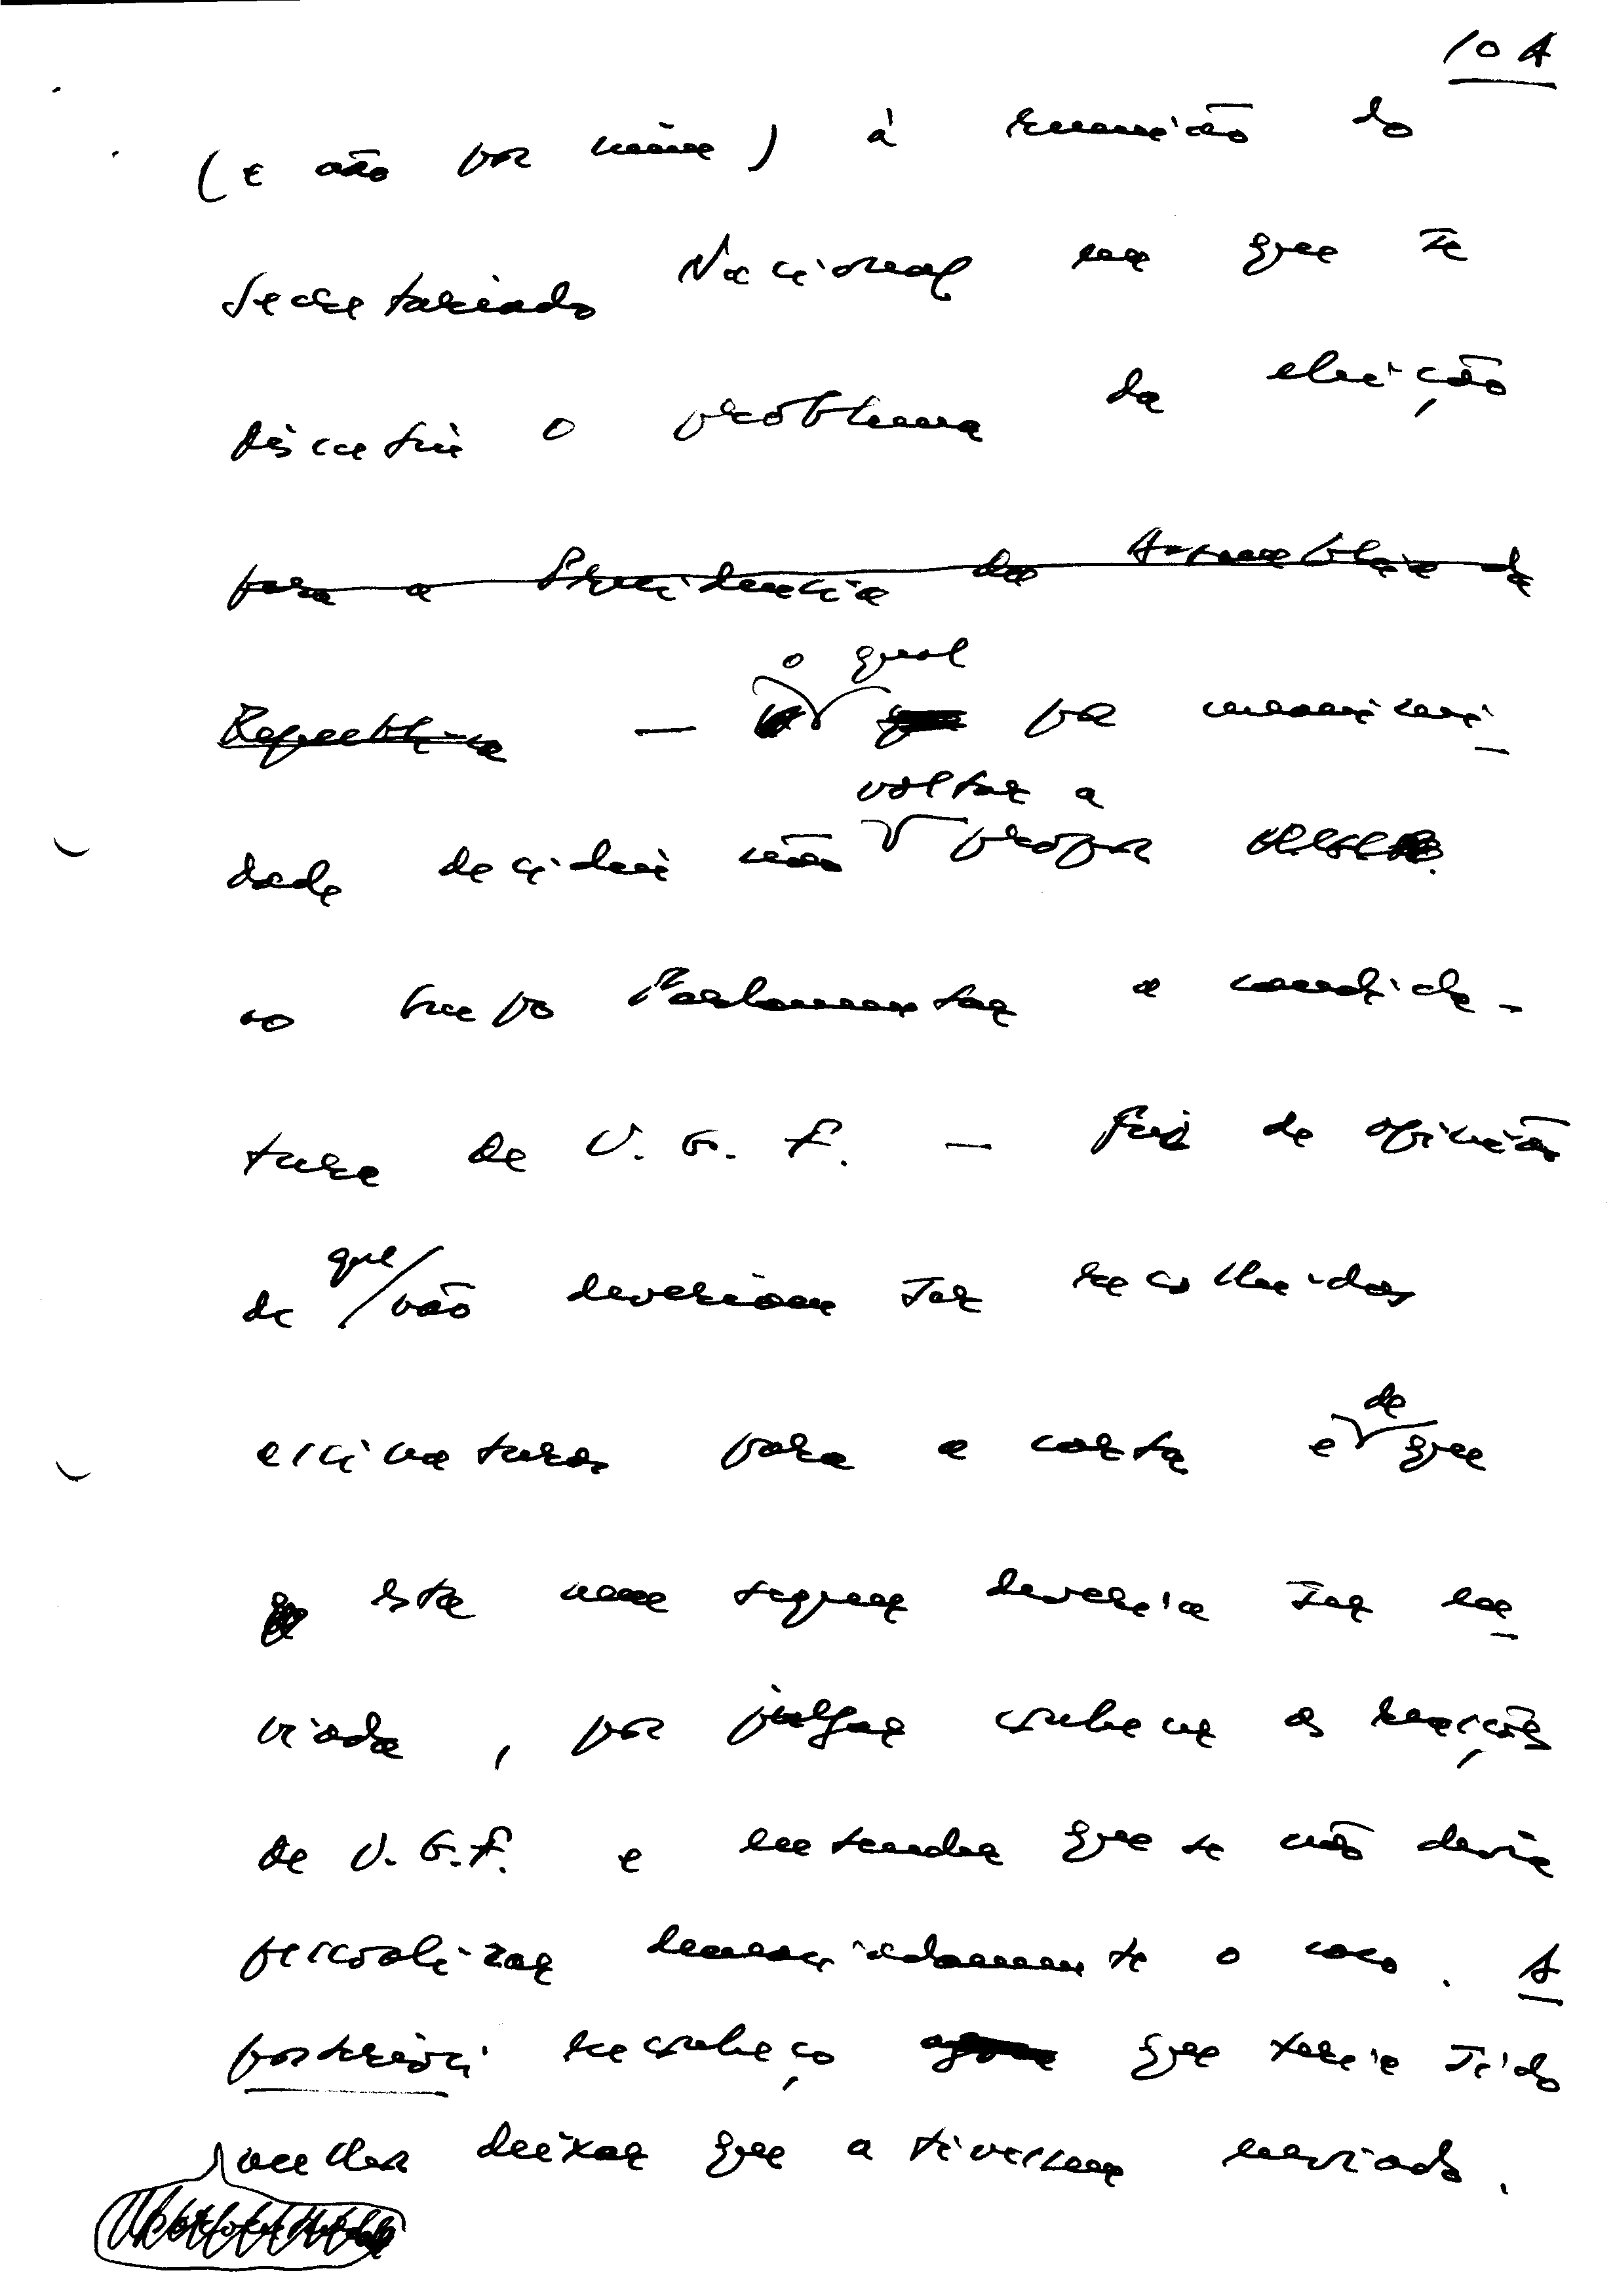 10 A
(e não por mim) à reunião do
Secretariado Nacional em que se
discutiu o problema da eleição
para a Presidência da Assembleia da
o qual
República — por unanimi-
voltar a
dade decidiu não propor
ao Grupo Parlamentar a candida-
tura de V. G. F. — fui de opinião
que
de não deveriam ser recolhidas
de
assinaturas para a carta e que
esta nem sequer deveria ser en-
viada, por julgar conhecer as reacções
de V. G. F. e entender que se não devia
personalizar demasiadamente o caso. A
posteriori reconheço que teria sido
melhor deixar que a tivessem enviado.